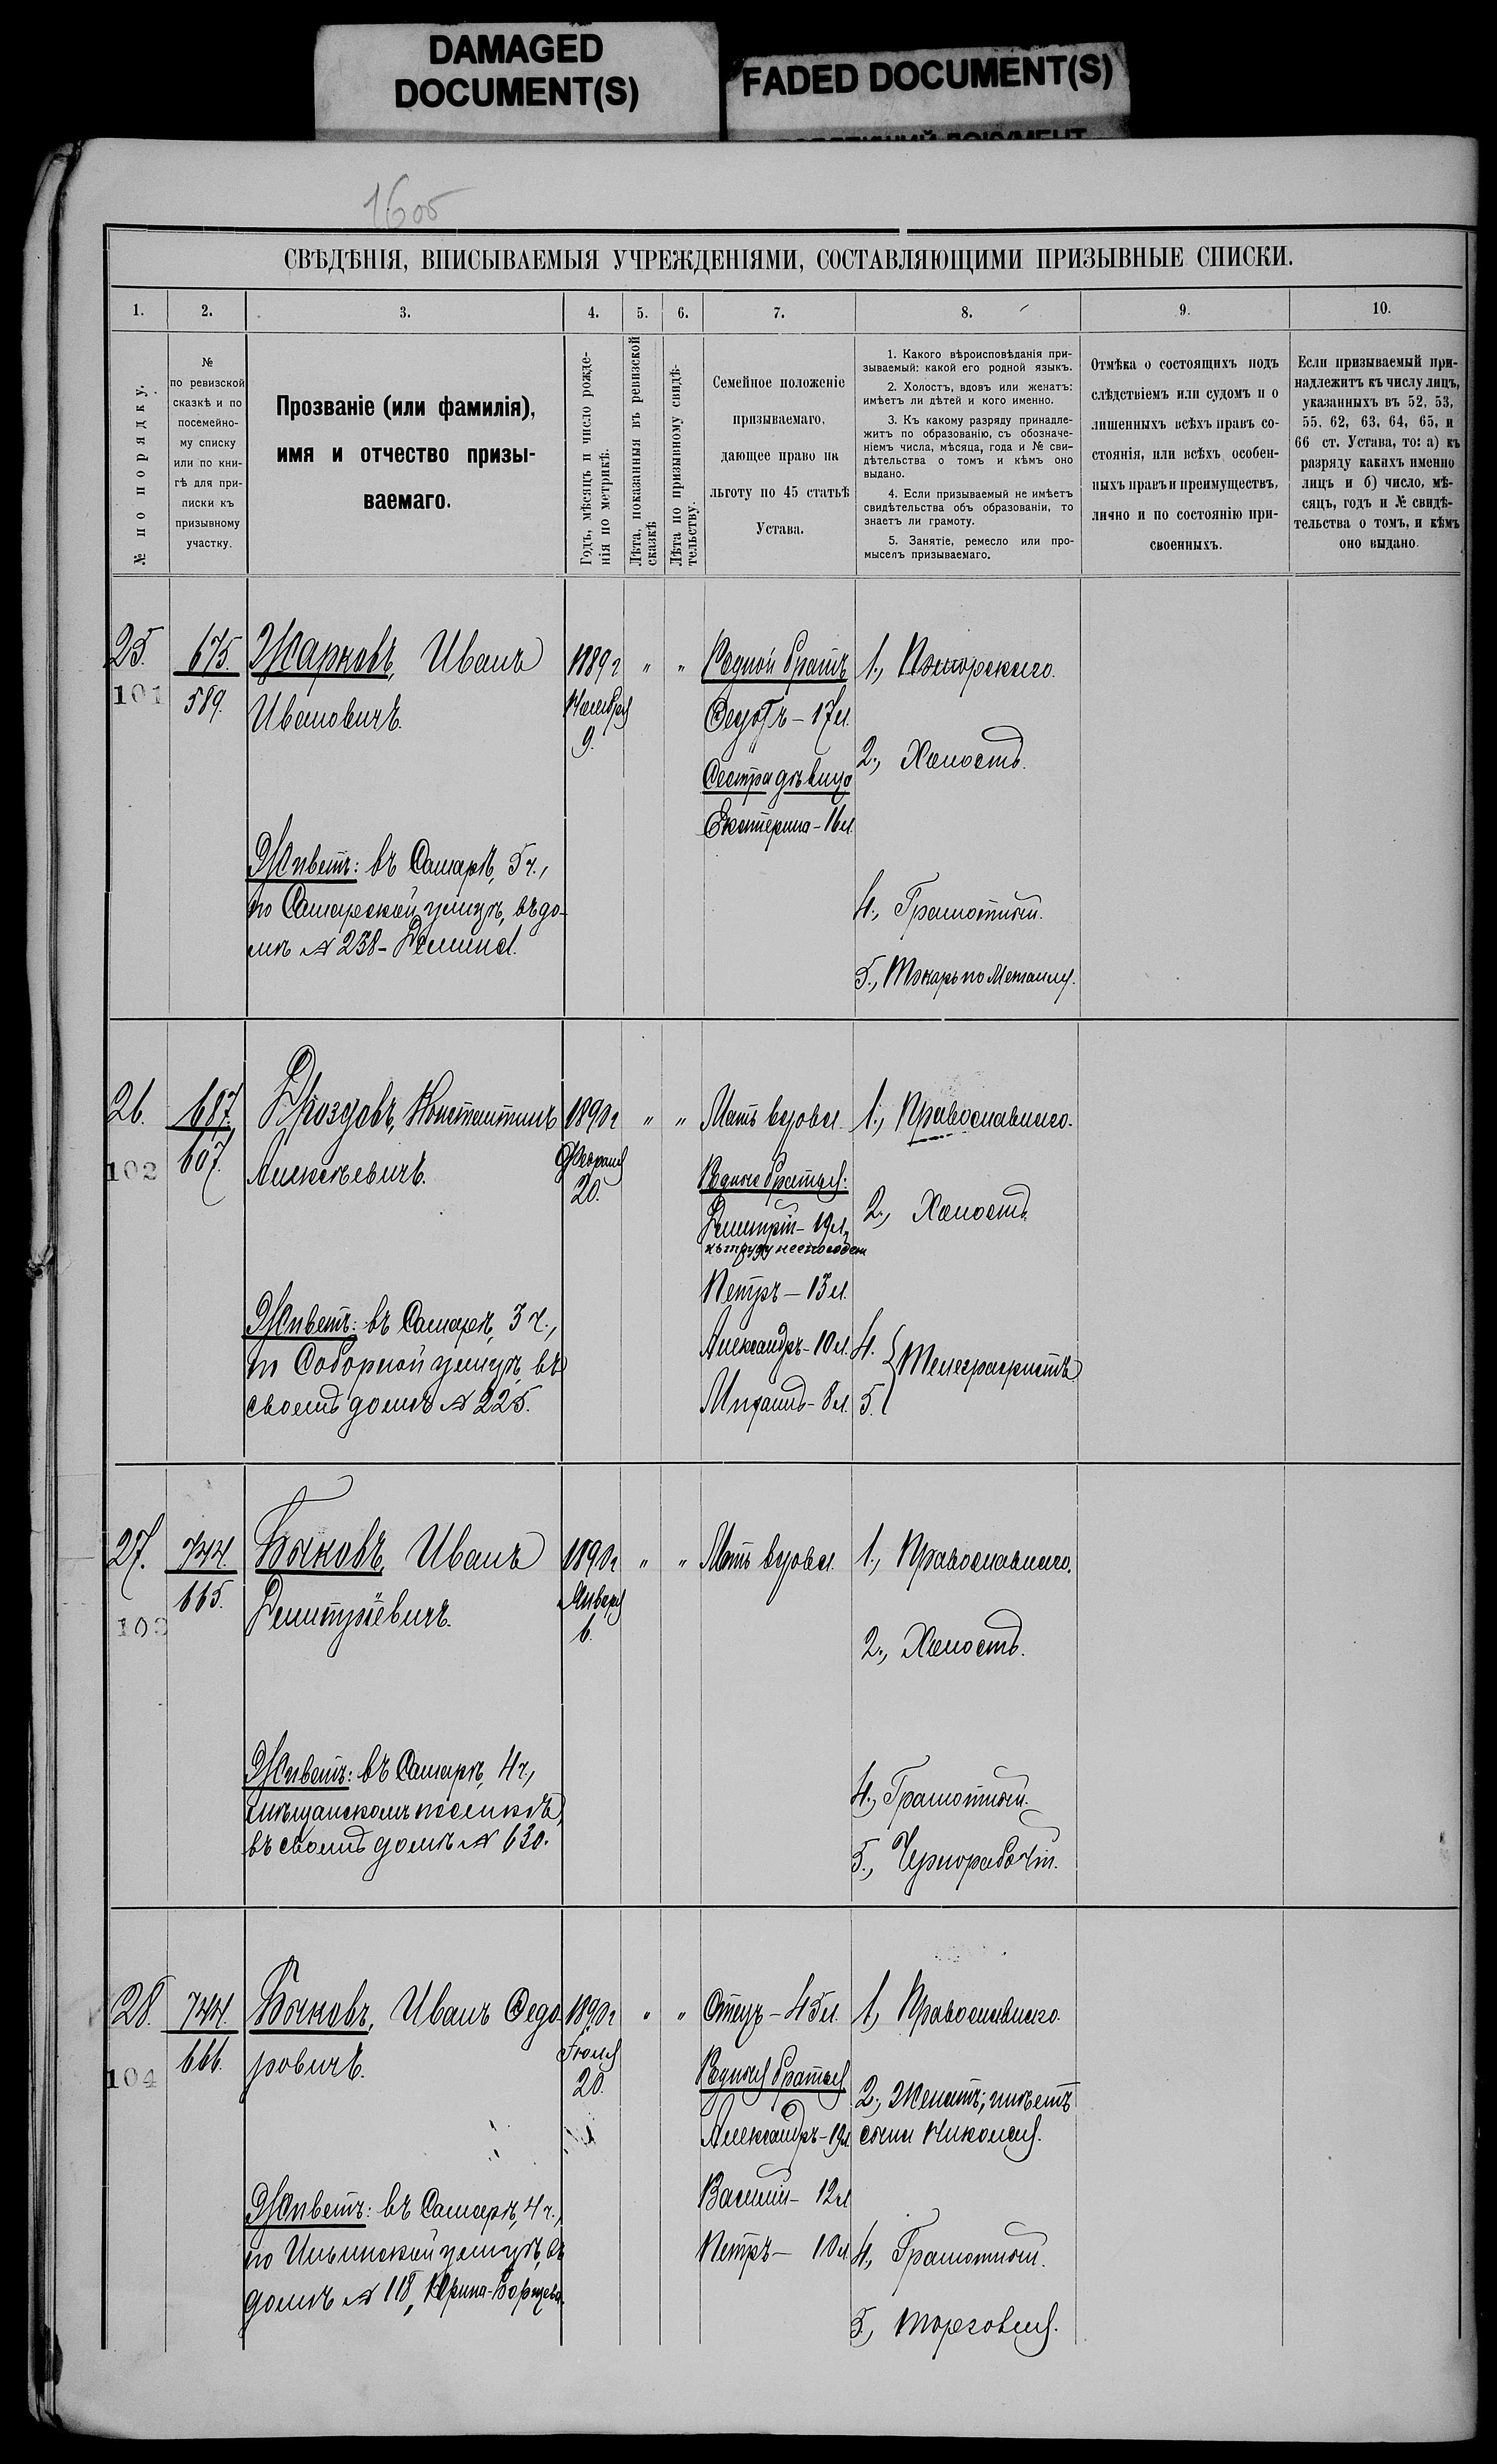 DAMAGED
DOCUMENT(S)
FADED DOCUMENT(S)
1605
СВѢДѢНІЯ, ВПИСЫВАЕМЫЯ УЧРЕЖДЕНІЯМИ, СОСТАВЛЯЮЩИМИ ПРИЗЫВНЫЕ СПИСКИ.
1. 2. 3. 4. 5. 6. 7. 8. 9. 10.
№ по порядку.
№
по ревизской
сказкѣ и по
посемейно-
му списку
или по кни-
гѣ для при-
писки къ
призывному
участку.
Прозваніе (или фамилія),
имя и отчество призы-
ваемаго.
Годъ, мѣсяцъ и число рожде-
нія по метрикѣ.
Лѣта, показанныя въ ревизской
сказкѣ
Лѣта по призывному свидѣ-
тельству.
Семейное положеніе
призываемаго,
дающее право на
льготу по 45 статьѣ
Устава.
1. Какого вѣроисповѣданія при-
зываемый: какой его родной языкъ.
2. Холостъ, вдовъ или женатъ:
имѣетъ ли дѣтей и кого именно.
3. Къ какому разряду принадле-
житъ по образованію, съ обозначе-
ніемъ числа, мѣсяца, года и № сви-
дѣтельства о томъ и кѣмъ оно
выдано.
4. Если призываемый не имѣетъ
свидѣтельства объ образованіи, то
знаетъ ли грамоту.
5. Занятіе, ремесло или про-
мыселъ призываемаго.
Отмѣка о состоящихъ подъ
слѣдствіемъ или судомъ и о
лишенныхъ всѣхъ правъ со-
стоянія, или всѣхъ особен-
ныхъ правъ и преимуществъ,
лично и по состоянію при-
своенныхъ.
Если призываемый при-
надлежитъ къ числу лицъ,
указанныхъ въ 52, 53,
55, 62, 63, 64, 65, и
66 ст. Устава, то: а) къ
разряду какихъ именно
лицъ и б) число, мѣ-
сяцъ, годъ и № свидѣ-
тельства о томъ, и кѣмъ
оно выдано.
25.
101
675.
589.
Жарковъ, Иванъ
Ивановичъ.
Живетъ: въ Самарѣ, 5 ч.,
по Самарской улицѣ, въ до-
мѣ № 238-
1889 г
Ноября
9.
" "
Родной братъ
Федотъ - 17 л.
Сестра дѣвица
Екатерина - 16 л.
1.,
2., Холостъ.
4., Грамотный.
5., Токарь по металлу.
26.
102
687.
607.
Дроздовъ, Константинъ
Алексѣевичъ.
Живетъ: въ Самарѣ, 3 ч.,
по Соборной улицѣ, въ
своемъ домѣ № 225.
1890 г
Февраля
20.
" "
Мать вдова.
Родные братья:
Дмитрій - 19 л.,
къ труду неспособен
Петръ - 13 л.
Александръ - 10 л.
Михаилъ - 8 л.
1., Православнаго.
2., Холостъ.
4.
5.
Телеграфистъ.
27.
103
744.
665.
Быковъ, Иванъ
Дмитріевичъ.
Живетъ: въ Самарѣ, 4 ч.,
(мѣщанскомъ поселкѣ),
въ своемъ домѣ № 630.
1890 г
Января
6.
" "
Мать вдова.
1., Православнаго.
2., Холостъ.
4., Грамотный.
5., Чернорабочій.
28.
104
744.
666.
Быковъ, Иванъ Федо-
ровичъ.
Живетъ: въ Самарѣ, 4 ч.,
по Ильинской улицѣ, въ
домѣ № 118,
1890 г
20.
" "
Отецъ - 45 л.
Родныя братья
Александръ - 19 л.
Василій - 12 л
Петръ - 10 л
1, Православнаго.
2., Женатъ; имѣетъ
сына Николая.
4., Грамотный.
5., Торговля.